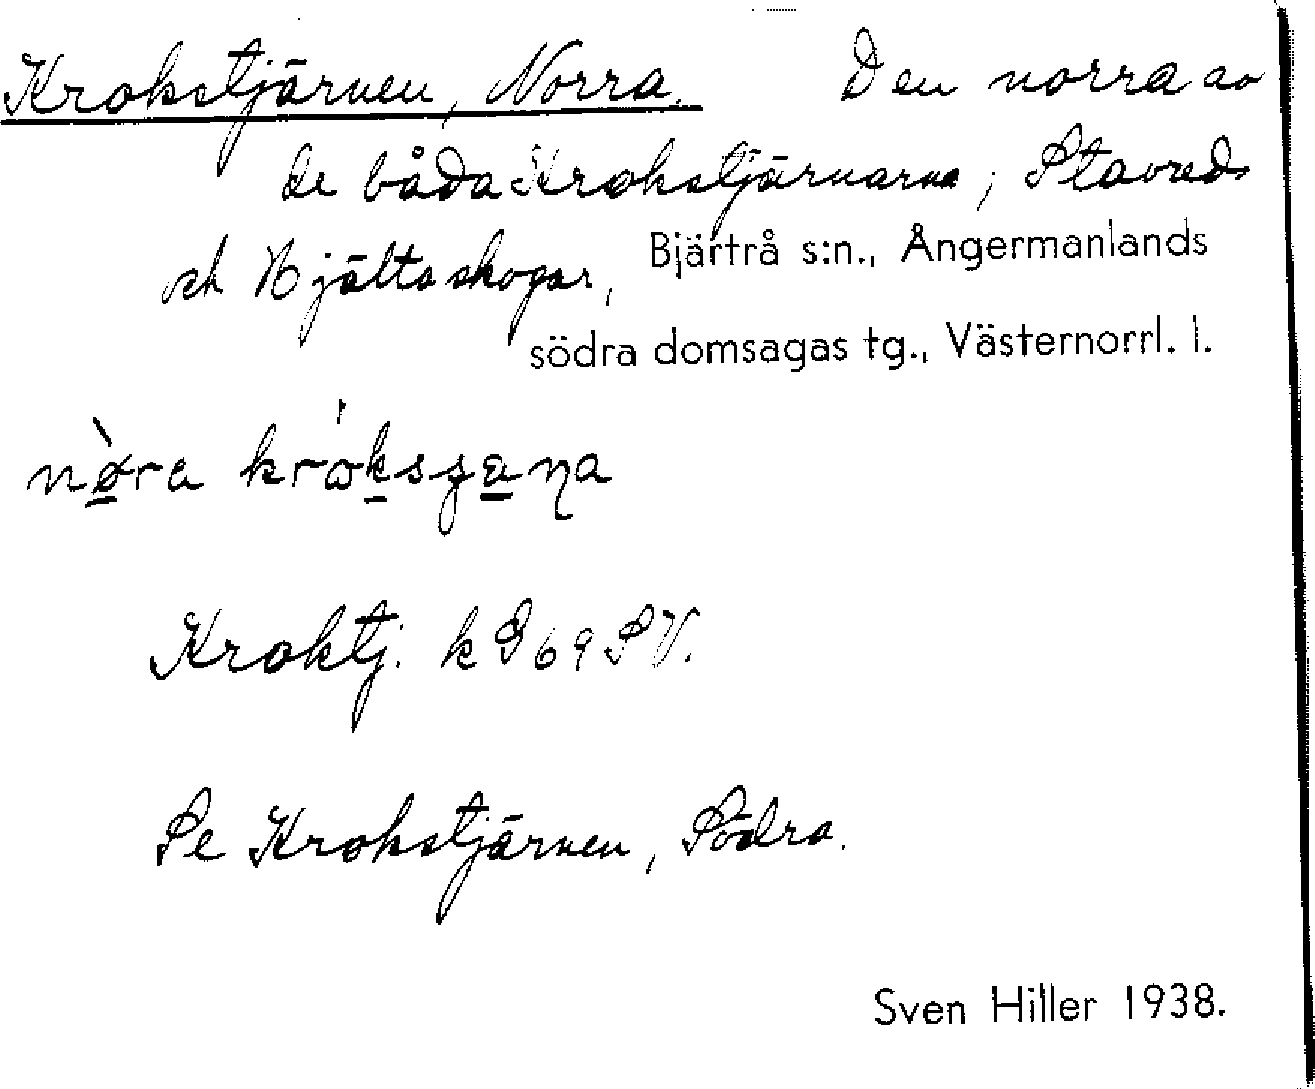 Krokstjärnen, Norra. Den norra av
de båda Krokstjärnarna; Stavreds
och Hjälta skogar, Bjärtrå s:n., Ångermanlands
södra domsagas tg., Västernorrl. l.
Kroktj. k G 69 SV.
Se Krokstjärnen, Södra.
Sven Hiller 1938.